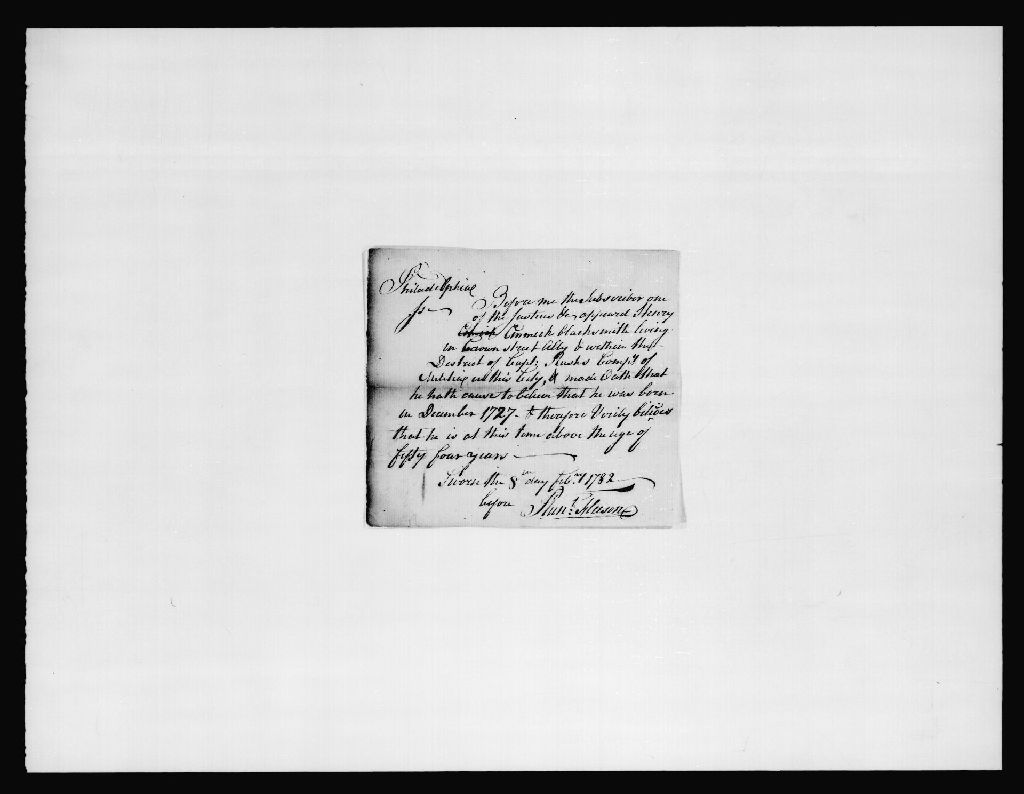 Philadelphia
ss Before me the Subscriber one
of the Justices &c, appeared Henry
Emmerk blacksmith living
in Crown street Ally & within the
District of Capt. Rushs Compy. of
Militia in this City, & made Oath that
he hath cause to believe that he was born
in December 1727. & therefore Verily believes
that he is at this time above the age of
fifty four years
Sworn the 8th day feb.ry 1782
before Plunt. Fleeson